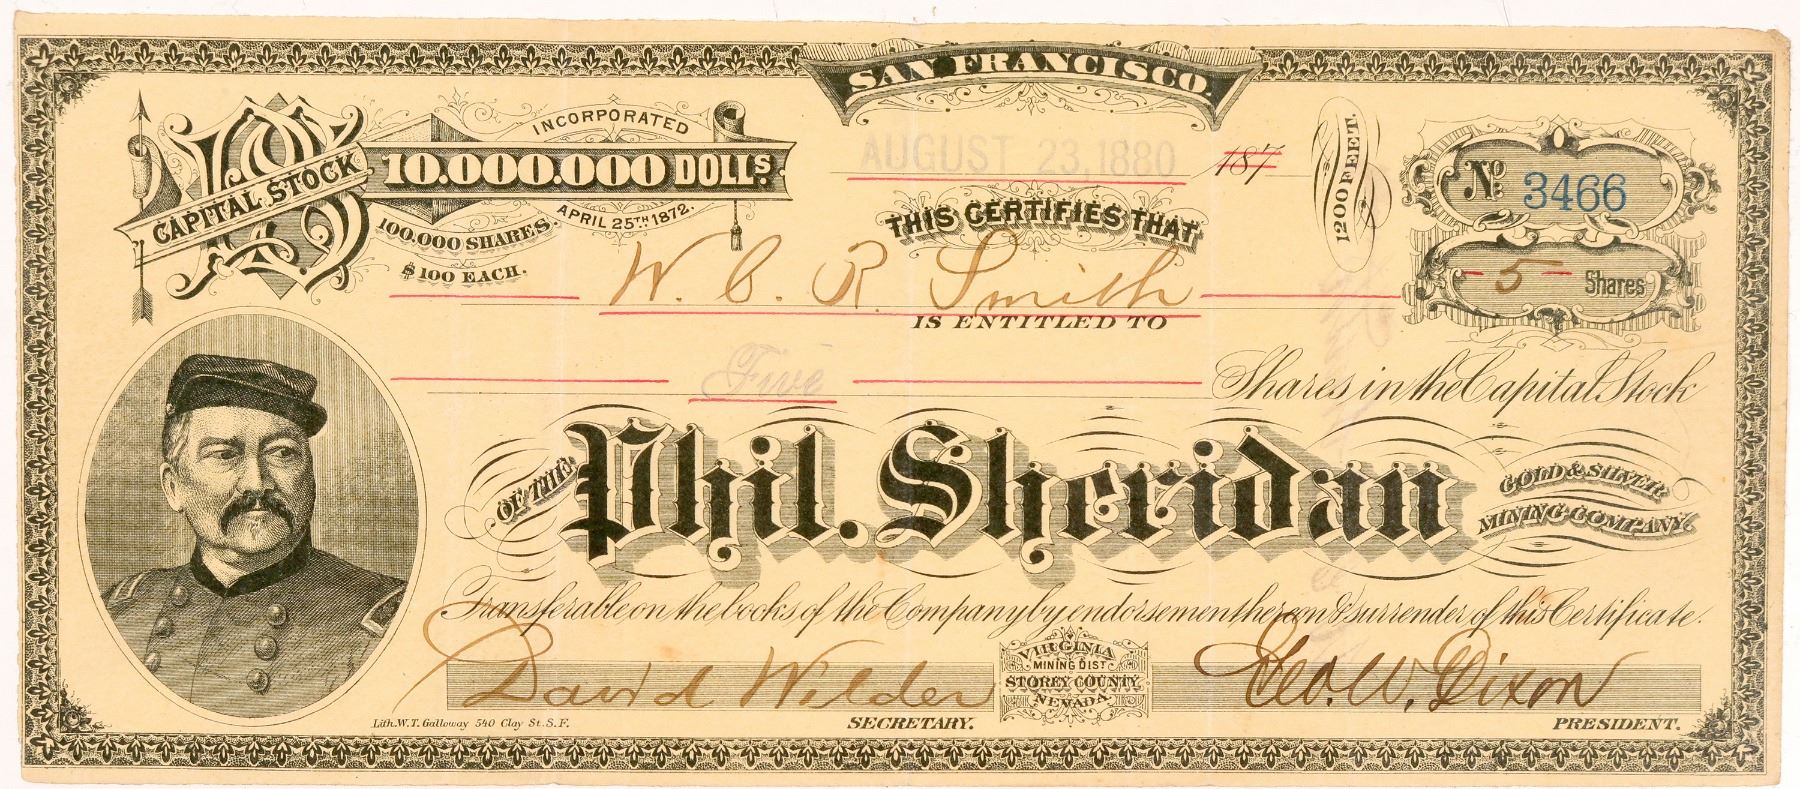 SAN FRANCISCO.
INCORPORATED
CAPITAL STOCK 10.000.000 DOLLS.
APRIL 25TH 1872.
100.000 SHARES.
$100 EACH.
AUGUST 23, 1880 187
1200 FEET.
No. 3466
5 Shares
THIS CERTIFIES THAT
W. C. R Smith
IS ENTITLED TO
Five Shares in the Capital Stock
OF THE Phil. Sheridan GOLD & SILVER
MINING COMPANY.
Transferable on the books of the Company by endorsement hereon & surrender of this Certificate.
David Wilder
SECRETARY.
VIRGINIA
MINING DIST
STOREY COUNTY
NEVADA.
Geo. W. Dixon
PRESIDENT.
Lith. W. T. Galloway 540 Clay St. S. F.